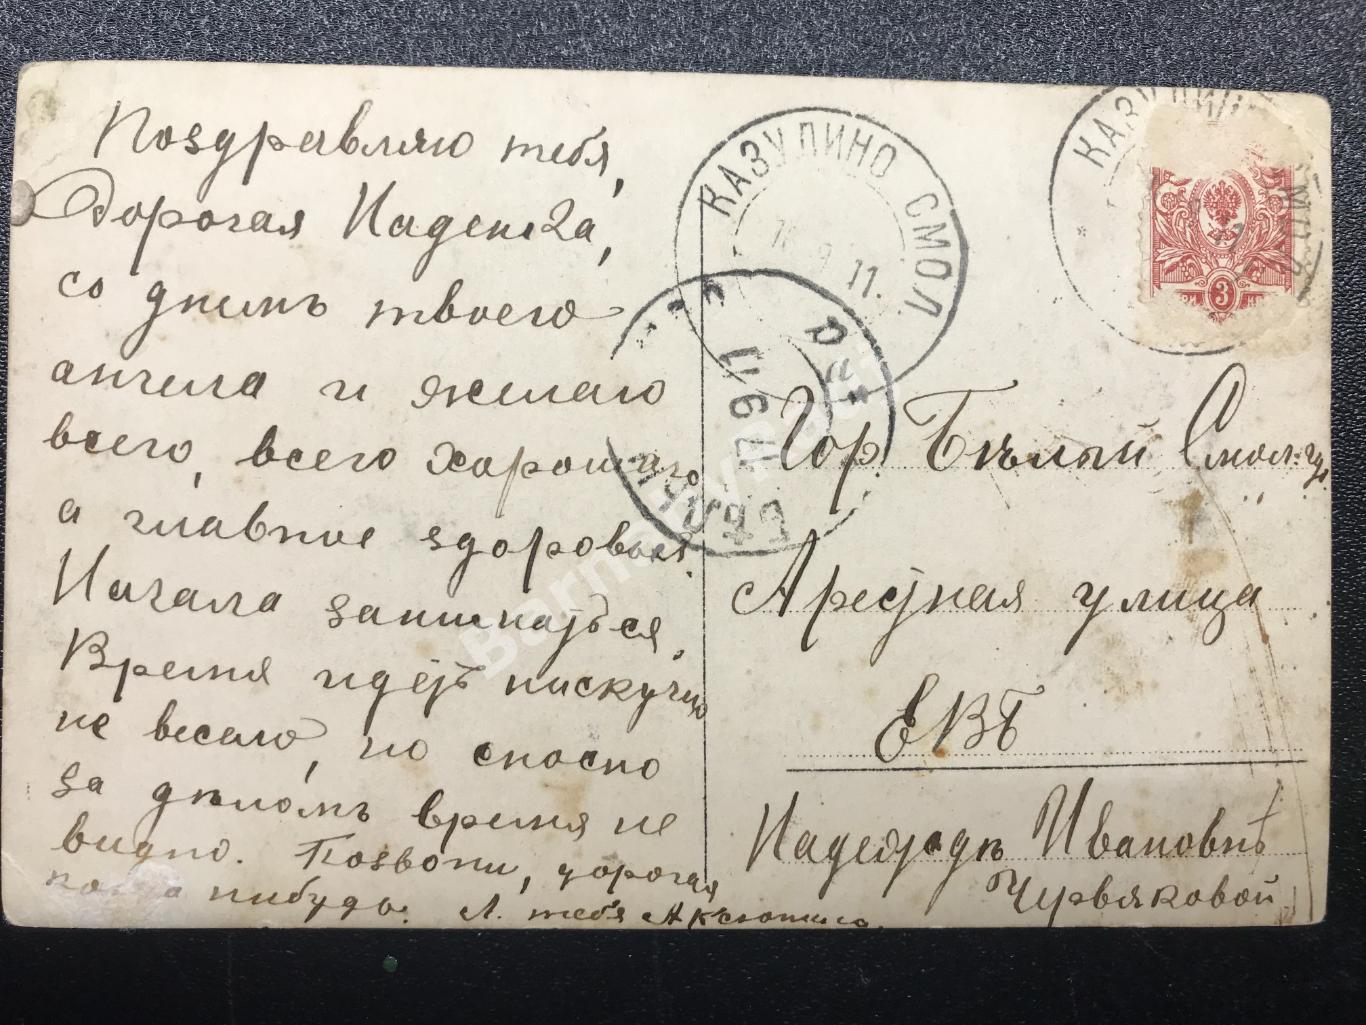 Поздравляю тебя,
Дорогая Надежда,
со днемъ твоего
ангела и желаю
всего, всего хорошаго,
а главное здоровья.
Начала заниматься.
Время идетъ нискучно
не весело, но сносно
за дѣломъ время не
видно. Позвони, дорогая
когда нибудь. Л. тебя
КАЗУЛИНО СМОЛ
9 11.
БѢЛЫЙ
КАЗУЛИНО
3
Гор Бѣлый Смол. гу.
улица
ЕВБ
Ивановнѣ
Червяковой
Barnaulyman